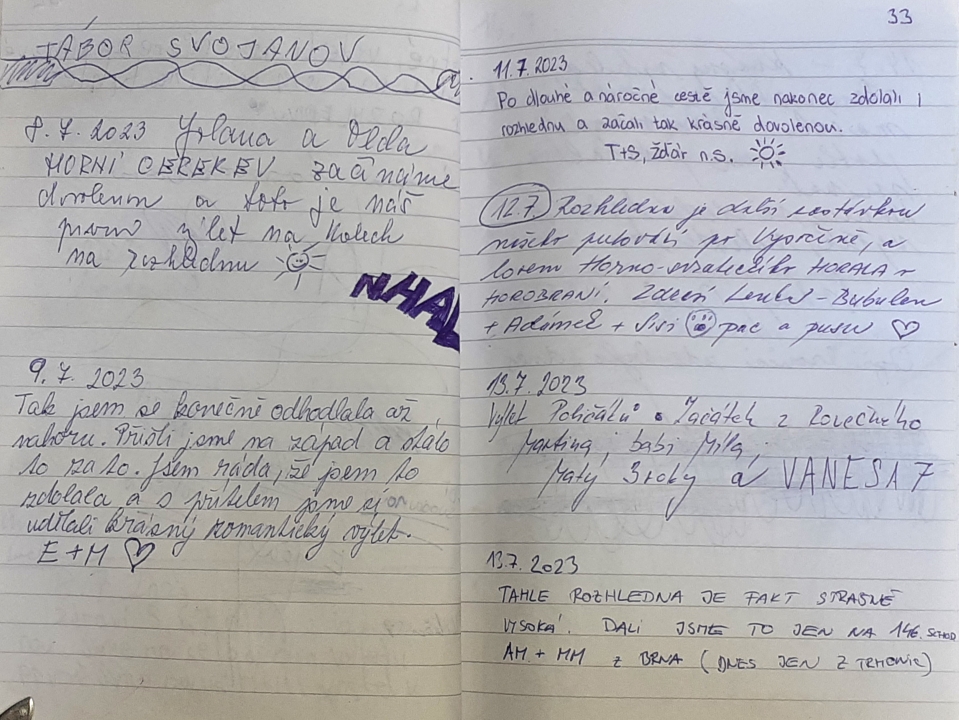 TÁBOR SVOJANOV
8. 7. 2023 a
HORNÍ CEREKEV začínáme
a toto je náš
výlet na kolech
na rozhlednu
NHAL
9. 7. 2023
Tak jsem se konečně odhodlala až
nahoru. Přišli jsme na západ a stálo
to za to. Jsem ráda, že jsem to
zdolala a s přítelem jsme si
udělali krásný romantický výlet.
E + M ♡
33
11.7.2023
Po dlouhé a náročné cestě jsme nakonec zdolali i
rozhlednu a začali tak krásně dovolenou.
T+S, Žďár n.S.
12.7. Rozhledna je další zastávkou
našeho putování po Vysočině, a
HORALA
HOROBRANÍ. Zdraví
+ Adámek + Sisi pac a pusu ♡
13.7.2023
Výlet Poličáků • Začátek z Rovečného
Martina, babi Míla,
Matý a VANESA 7
13.7.2023
TAHLE ROZHLEDNA JE FAKT STRASNĚ
VYSOKÁ. DALI JSME TO JEN NA 146. SCHOD
AM + MM z BRNA (DNES JEN Z TRHONIC)